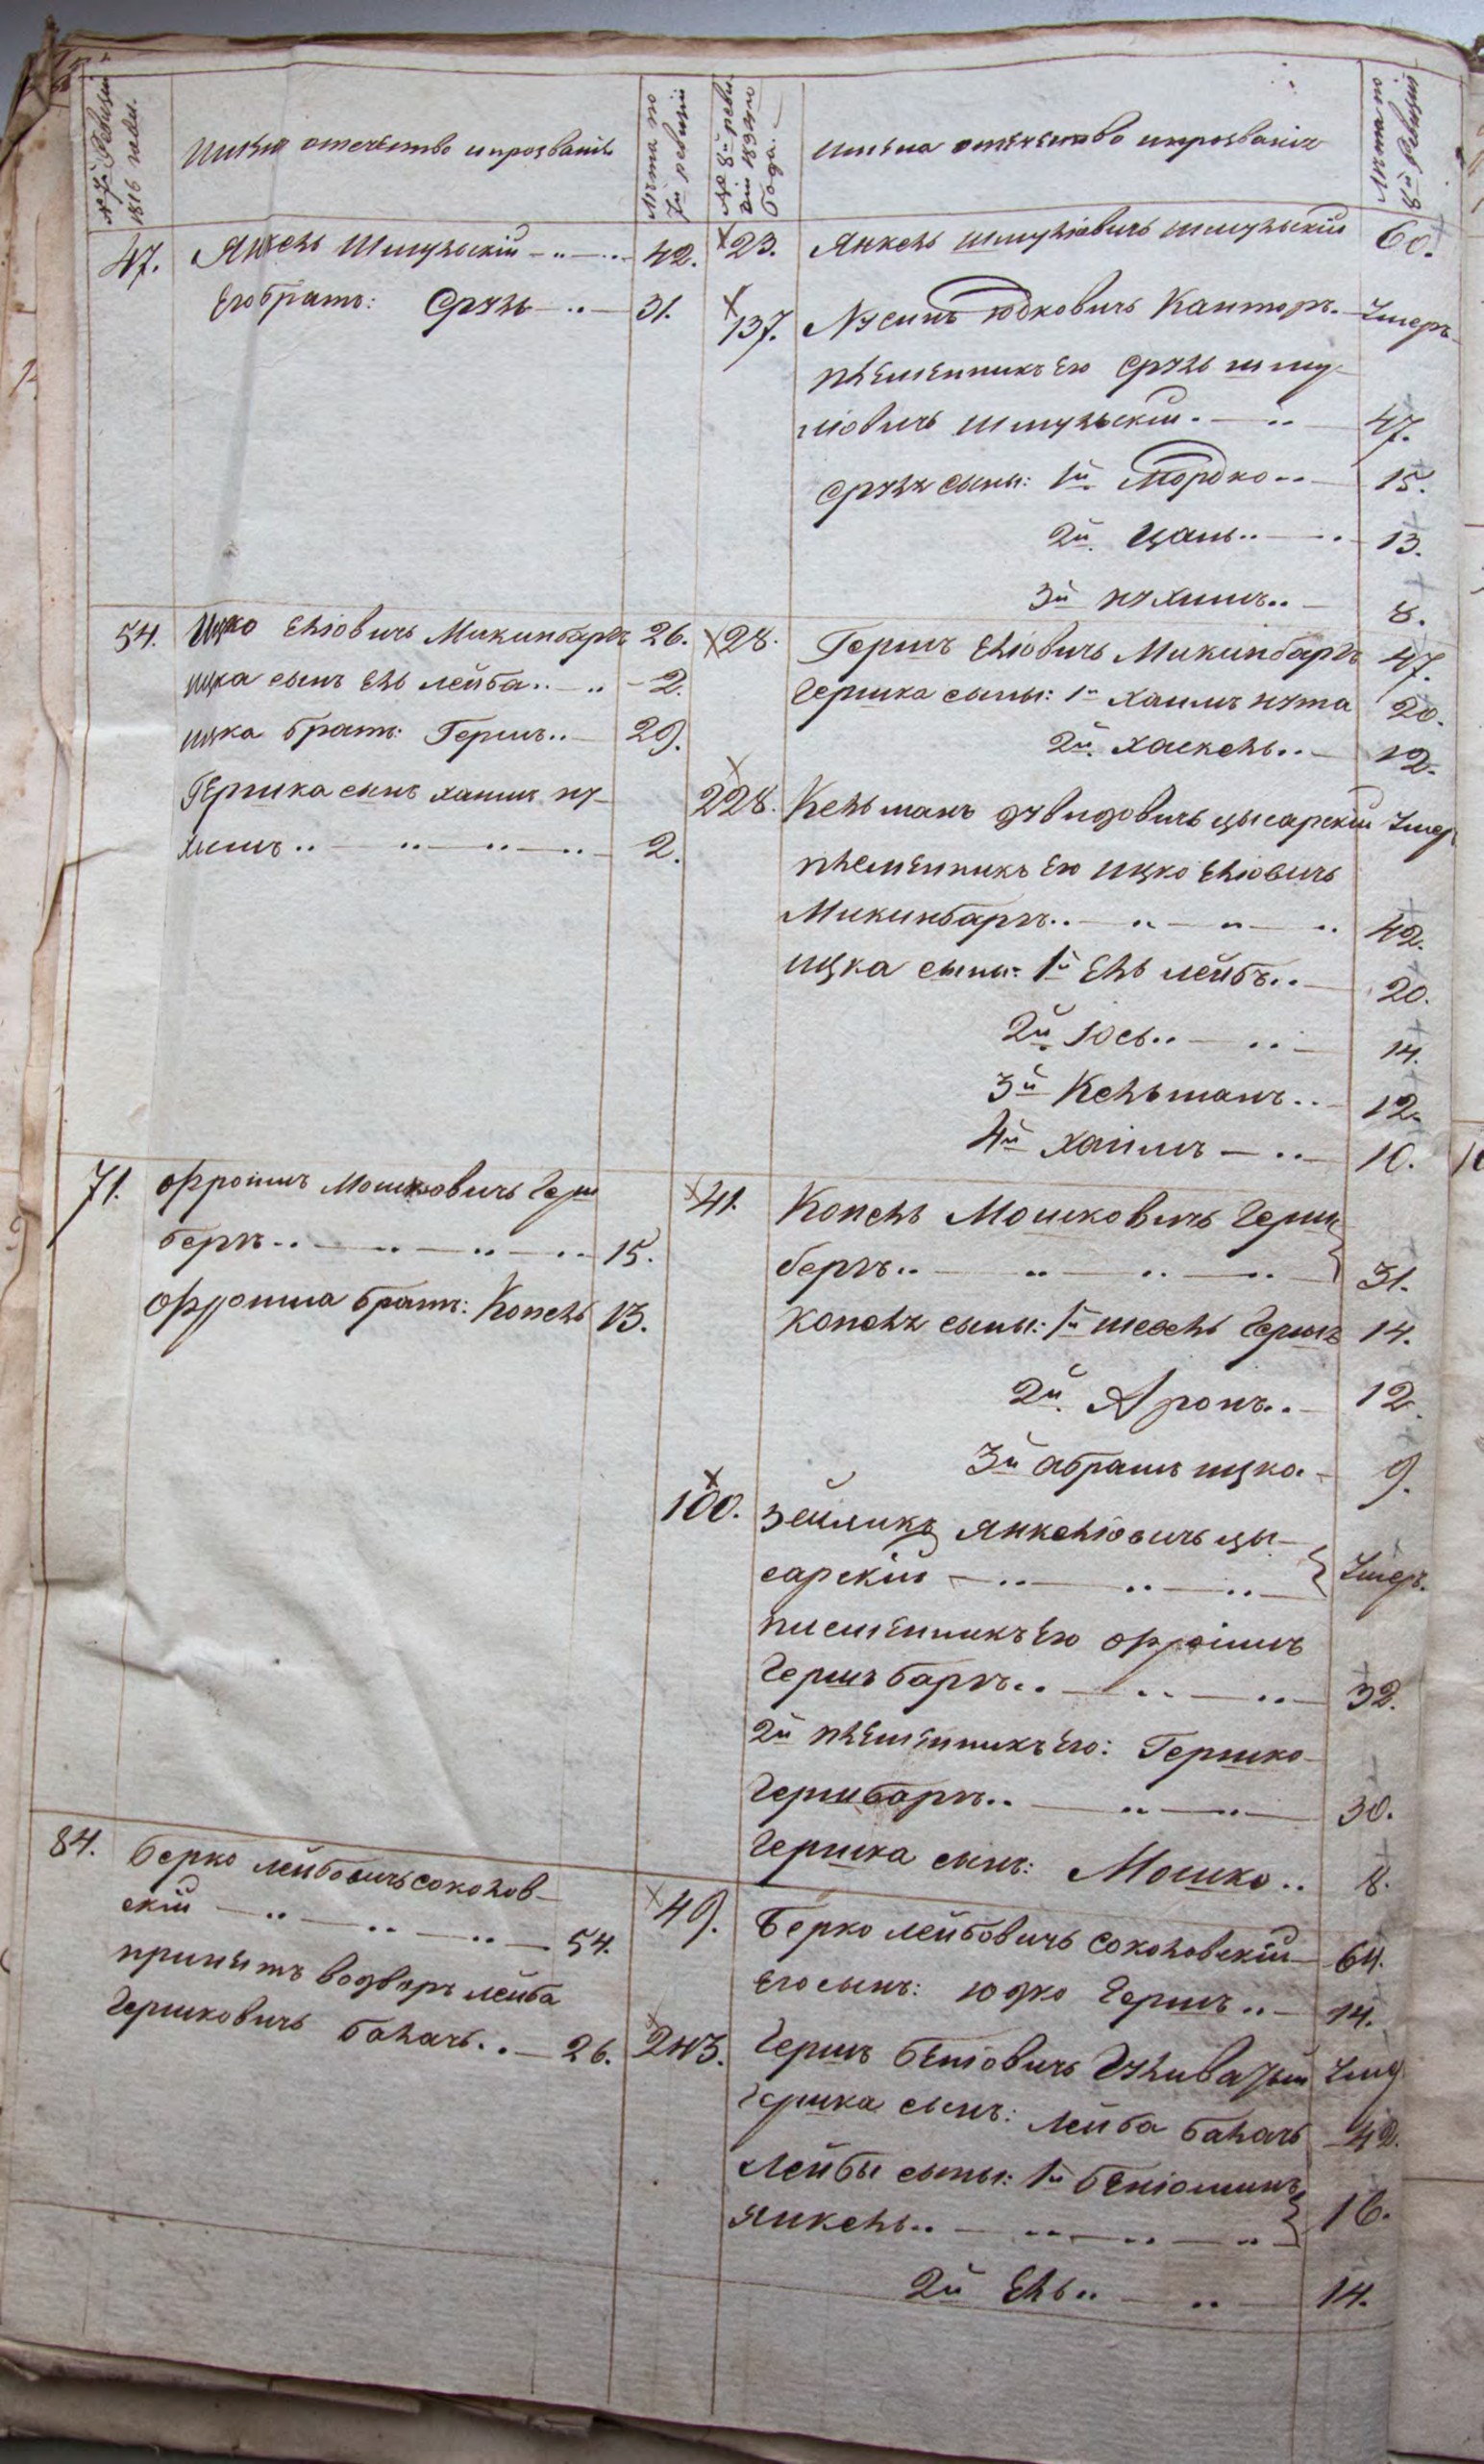 № 7й Ревизіи 1816 года.
Имена отечество ипрозваніе
Лѣта по 7й ревизіи
№ 8й реви зіи 1834го Года.
имена отечество ипрозваніе
Лѣта по 8й Ревизіи
47. Янкель Шмульскій 42. 23. Янкель шмуліовичъ шмульскій 60.
Егобратъ: Сруль 31. 137. Нусинъ Юдковичъ Канторъ. Умеръ
племенникъ Его Сруль шму-
ліовичъ шмульскій. 47.
Сруля сыны: 1й Мордко 15.
2й Цаль 13.
3й Нухимъ 8.
54. Ицко Еліовичъ Микинбаргъ 26. 28. Гершъ Еліовичъ Микинбаргъ 47.
ицка сынъ Ель лейба 2. Гершка сыны: 1й хаимъ нута 20.
ицка братъ: Гершъ 29. 2й хаскель 12.
Гершка сынъ хаимъ ну- 228. Кельманъ давидовичъ цысарскій Умер
химъ 2. племенникъ Его ицко Еліовичъ
Микинбаргъ 42.
ицка сыны: 1й Ель лейбъ 20.
2й Іось 14.
3й Кельманъ 12.
4й хаимъ 10.
71. Офроимъ Мошковичъ Герш 41. Копель Мошковичъ Герш
бергъ 15. бергъ 31.
Офроима братъ: Копель 13. Копеля сыны: 1й Гершъ 14.
2й Аронъ 12.
3й абрамъ ицко 9.
100. Зейликъ Янкеліовичъ цы-
сарскій Умеръ.
племенникъ Его Офроимъ
Гершбаргъ 32.
2й племенникъ Его: Гершко
Гершбаргъ 30.
Гершка сынъ: Мошко 8.
84. Берко лейбовичъ соколов- 49. Берко лейбовичъ Соколовскій 64.
скій 54. Егосынъ: юдко Гершъ 14.
принятъ водворъ лейба 243. Гершъ Беніовичъ Умер
Гершковичъ балачъ 26. Гершка сынъ: лейба балачъ 42.
Лейбы сыны: 1й Беніоминъ
Янкель 16.
2й Ель 14.